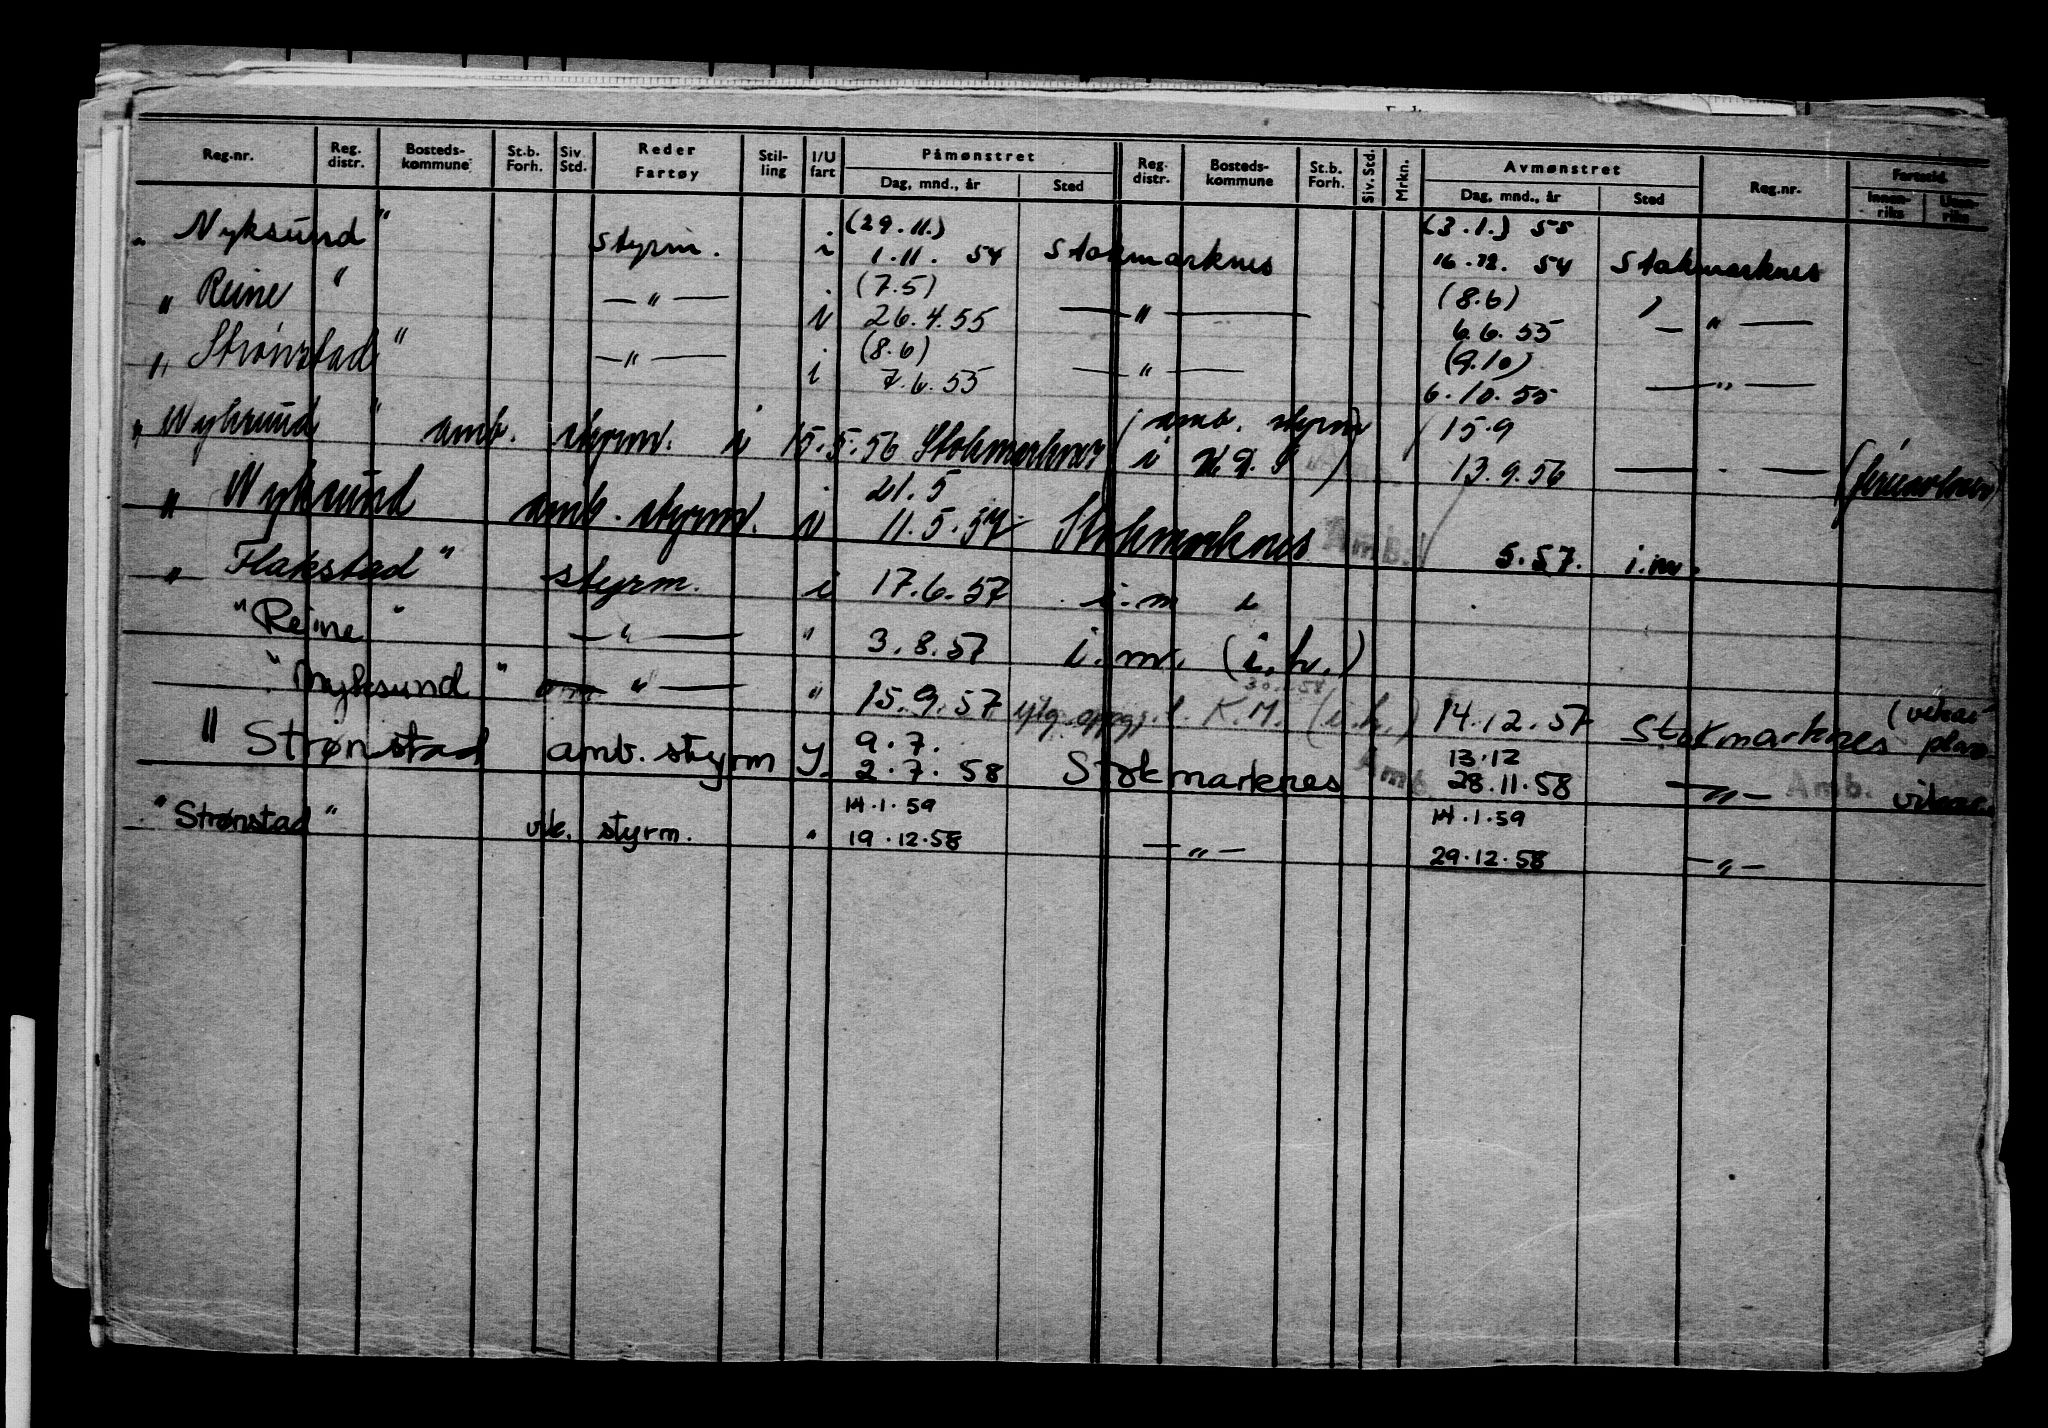 Reg.nr. Reg. distr. Bosteds-kommune St.b. Forh. Siv. Std. Reder Fartøy Stil-ling I/U fart Påmønstret Dag, mnd., år Sted Reg. distr. Bosteds-kommune St.b. Forh. Siv. Std. Mrkn. Avmønstret Dag, mnd., år Sted Reg.nr. Innen-riks Uten-riks
(29.11.) (3.1.) 55
" Nyksund " styrm. i 1.11. 54 Stokmarknes 16.12. 54 Stokmarknes
(7.5) (8.6)
" Reine " — " — i 26.4.55 — " — 6.6.55 — " —
(8.6) (9.10)
" Strønstad " — " — i 7.6.55 — " — 6.10.55 — " —
(amb. styrm 15.9
" Nyksund " amb. styrm. i 15.5.56 Stokmarknes i 13.9.56 — " —
21.5
" Nyksund amb. styrm. i 11.5.57 Stokmarknes Amb. 5.57. i.m.
" Flakstad " styrm. i 17.6.57 i.m
" Reine " — " — " 3.8.57 i.m. (i.h.)
" Nyksund " — " — " 15.9.57 K.M. (i.h.) 14.12.57 Stokmarknes
9.7. 13.12
" Strønstad amb. styrm 2.7.58 Stokmarknes Amb. 28.11.58 — " — Amb. vikar.
14.1.59 14.1.59
" Strønstad " vik. styrm. " 19.12.58 — " — 29.12.58 — " —